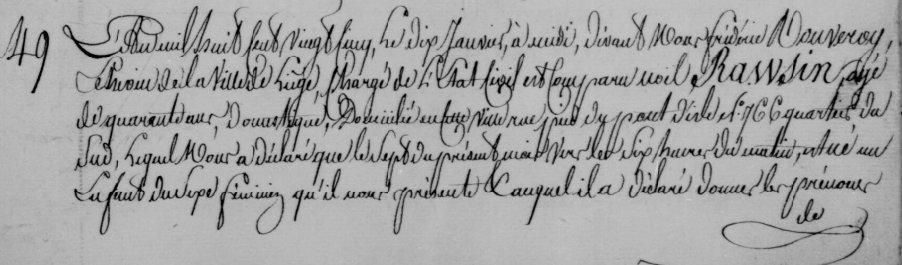 49 L'An mil huit cent vingt cinq, le dix Janvier, à midi, devant Nous frédéric Rouveroy,
Echevin de la Ville de Liège, chargé de l'Etat Civil est comparu noël Rawsin, agé
de quarante ans, Domestique, Domicilié en cette Ville rue pied du pont d'isle N° 766 quartier du
Sud, Lequel Nous a déclaré que le sept du présent mois vers les six heures du matin, est né un
Enfant du sexe féminin qu'il nous présente & auquel il a déclaré donner les prénoms
de